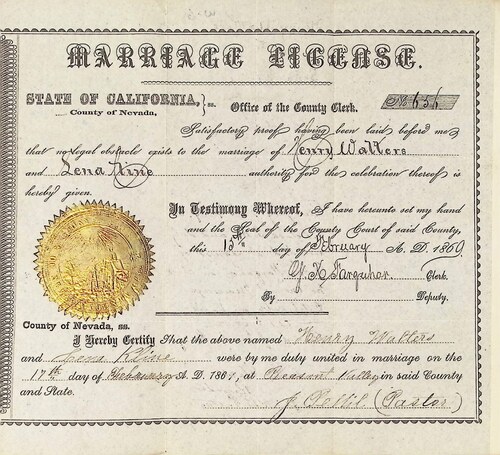 MARRIAGE LICENSE.
STATE OF CALIFORNIA, } ss. Office of the County Clerk. No 636
County of Nevada,
Satisfactory proof having been laid before me
that no legal obstacle exists to the marriage of Henry Walters
and Lena Kline authority for the celebration thereof is
hereby given.
In Testimony Whereof, I have hereunto set my hand
and the Seal of the County Court of said County,
this 13th day of February A. D. 186
Farquhar. Clerk.
By Deputy.
County of Nevada, ss.
I Hereby Certify That the above named Henry Walters
and Lena Kline were by me duly united in marriage on the
17th day of February A. D. 186 , at Pleasant Valley in said County
and State.
(Pastor)